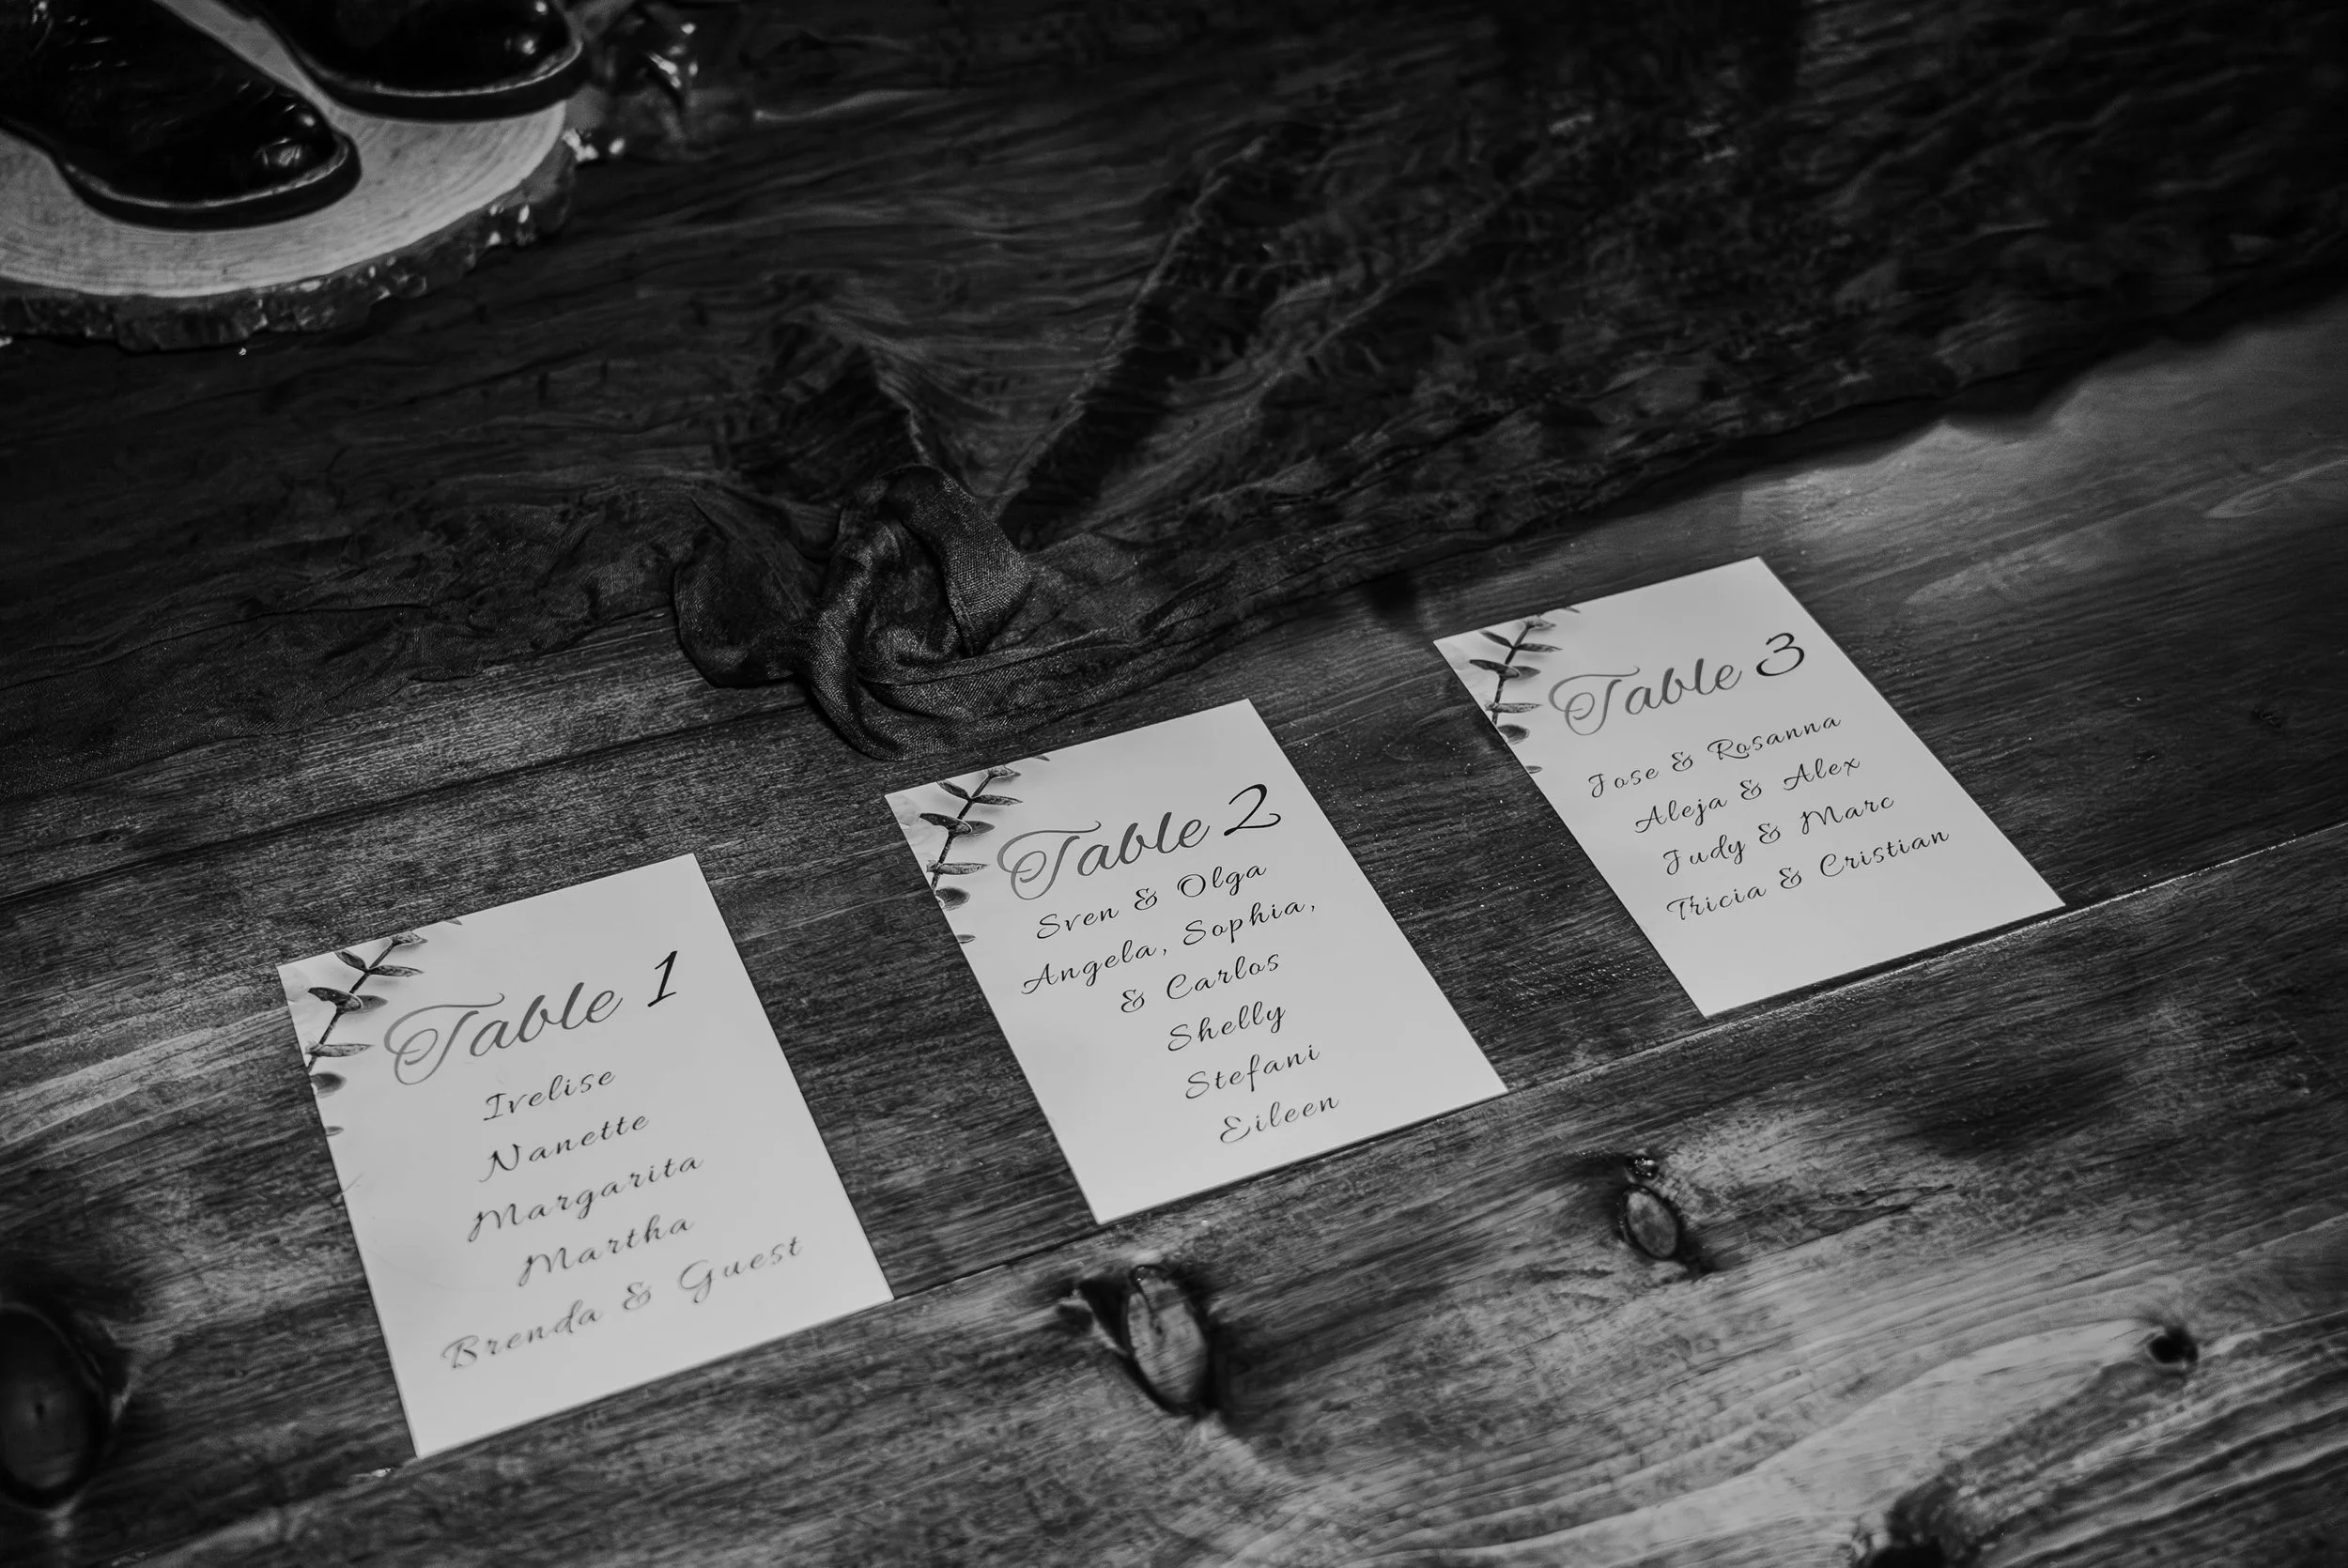 Table 1
Ivelise
Nanette
Margarita
Martha
Brenda & Guest
Table 2
Sven & Olga
Angela, Sophia,
& Carlos
Shelly
Stefani
Eileen
Table 3
Jose & Rosanna
Aleja & Alex
Judy & Marc
Tricia & Cristian